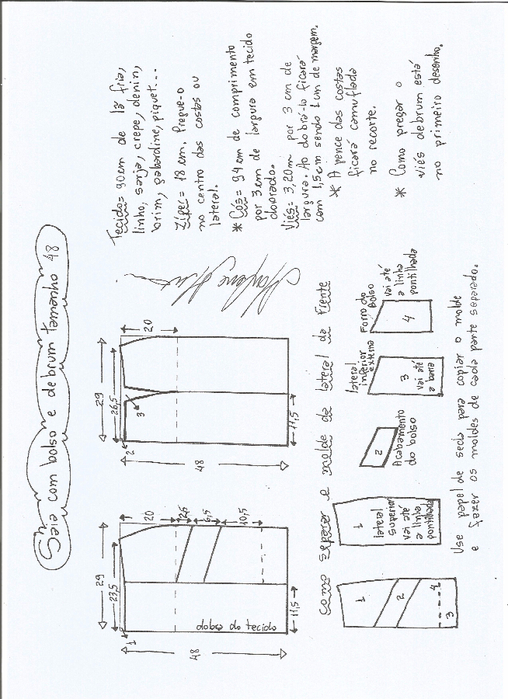 Saia com bolso e debrum tamanho 48
Tecido= 90cm de lã fria,
linho, sarja, crepe, denin,
brim, gabardine, piquet...
Zíper= 18cm. Pregue-o
no centro das costas ou
lateral.
* Cós= 94cm de comprimento
por 3cm de largura em tecido
dobrado.
Viés= 3,20m por 3cm de
largura. Ao dobrá-lo ficará
com 1,5cm sendo 1cm de margem.
* A pence das costas
ficará camuflada
no recorte.
* Como pregar o
viés debrum está
no primeiro desenho.
29
27,5
1
20
2,5
6,5
10,5
48
11,5
dobra do tecido
29
26,5
2
3
20
48
11,5
Como separar o molde da lateral da Frente
1
2
4
3
1
lateral
superior
vai até
a linha
pontilhada
2
Acabamento
do bolso
lateral
inferior
externa
3
vai até
a barra
Forro do
bolso
vai até
a linha
pontilhada
4
Use papel de seda para copiar o molde
e fazer os moldes de cada parte separado.